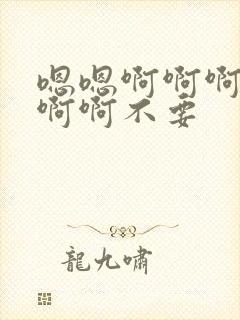 嗯嗯啊啊啊
啊啊不要
龍九嘯